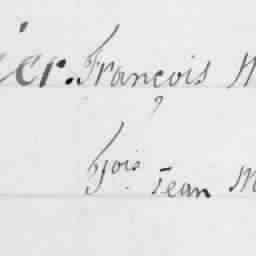 ier. François M
fçois Jean M